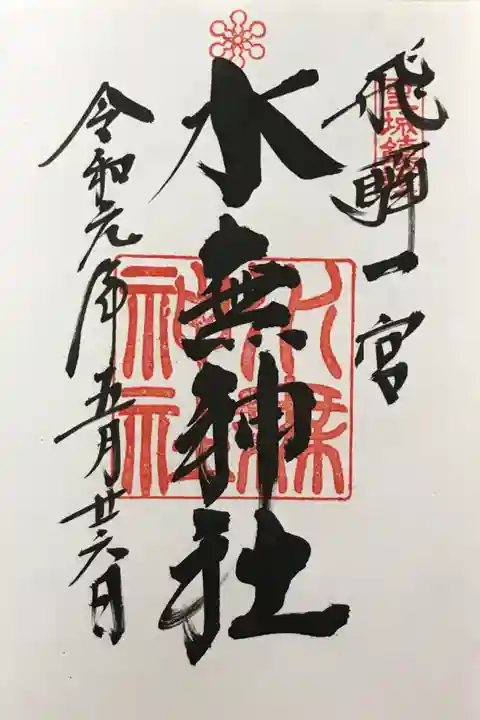 飛騨一宮
水無神社
令和元年五月廿六日
水無神社